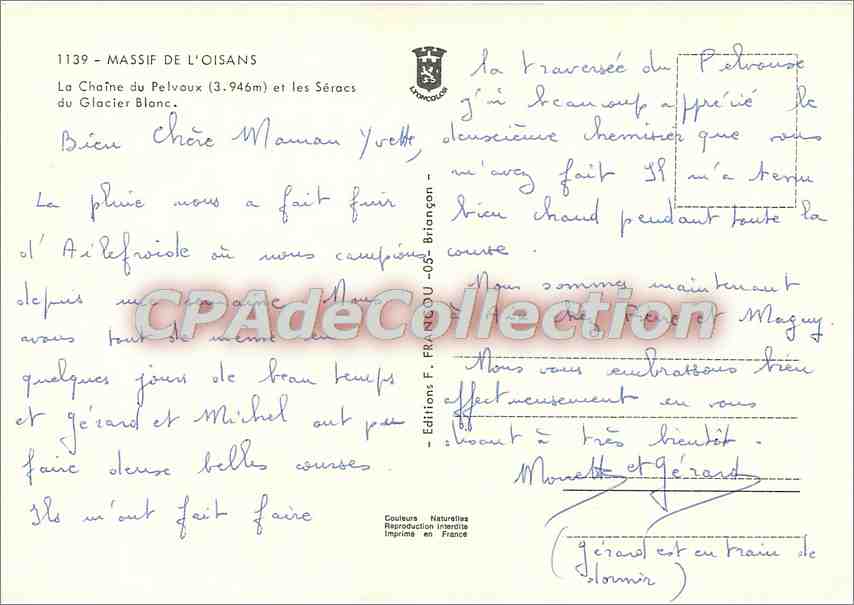 1139 - MASSIF DE L'OISANS
La Chaîne du Pelvoux (3.946m) et les Séracs
du Glacier Blanc.
LYONCOLOR
Bien chère Maman Yvette,
La pluie nous a fait fuir
d'Ailefroide où nous campions
depuis une semaine. Nous
avons tout de même eu
quelques jours de beau temps
et Gérard et Michel ont pu
faire deux belles courses.
Ils m'ont fait faire
- Editions F. FRANCOU -05- Briançon -
la traversée du Pelvoux
j'ai beaucoup apprécié le
deuxième chemisier que vous
m'avez fait Il m'a tenu
bien chaud pendant toute la
course.
Nous sommes maintenant
à chez Pierre et Maguy.
Nous vous embrassons bien
affectueusement en vous
disant à très bientôt.
et Gérard
(Gérard est en train de
dormir)
Couleurs Naturelles
Reproduction Interdite
Imprimé en France
CPAdeCollection